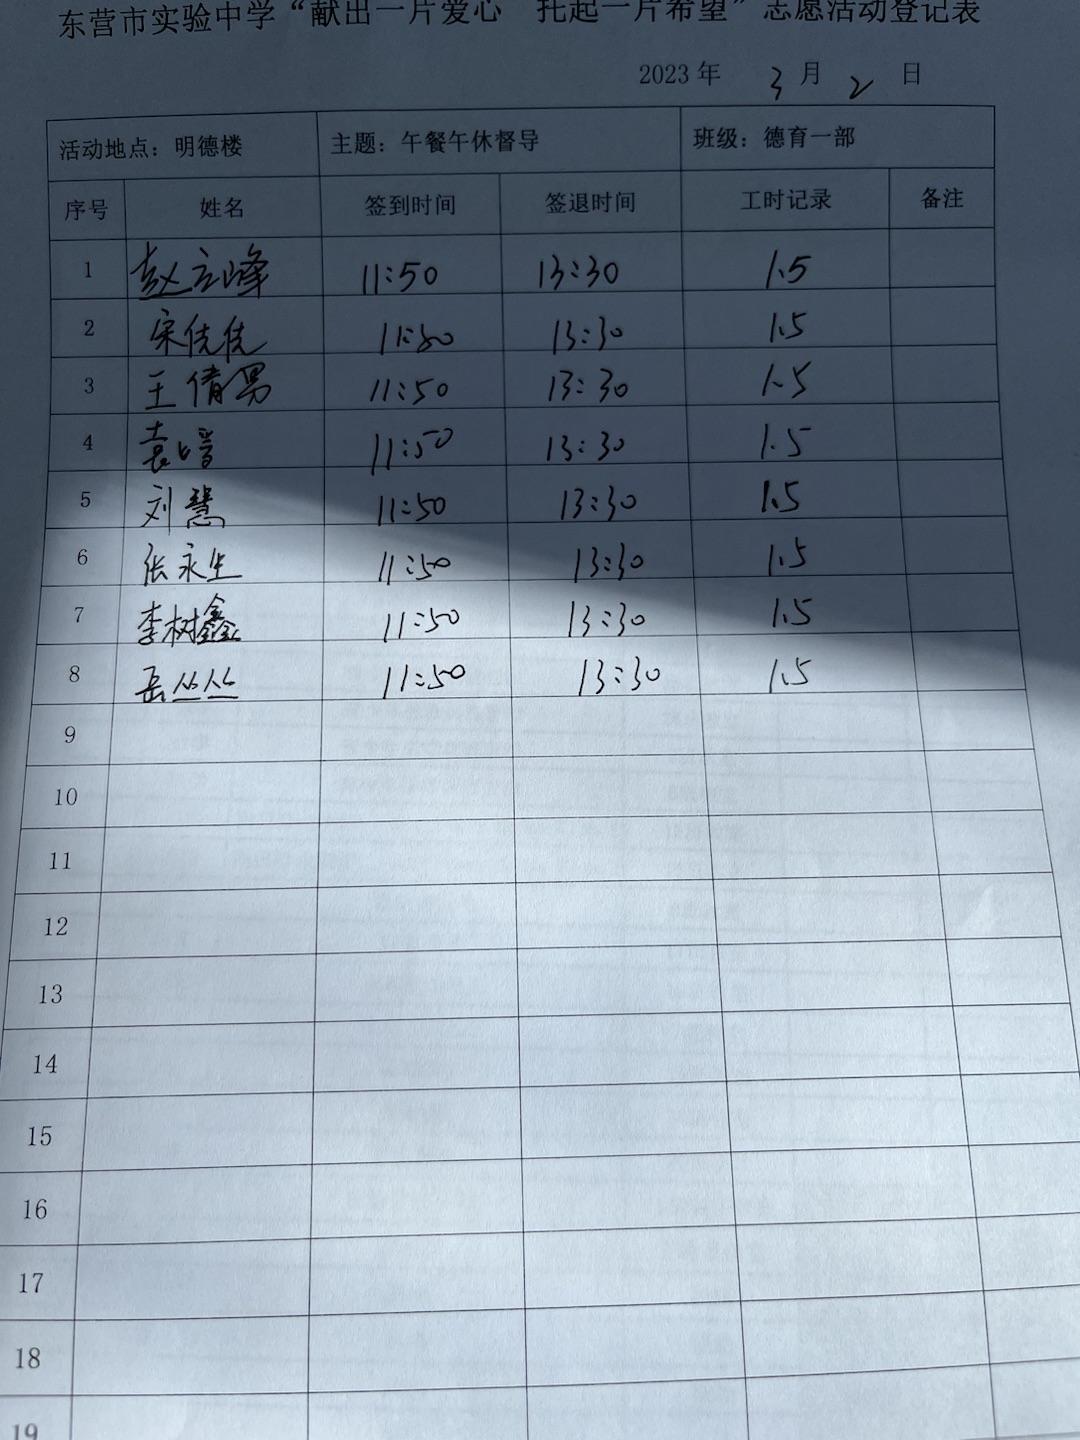 东营市实验中学“献出一片爱心 托起一片希望”志愿活动登记表
2023 年 3 月 2 日
活动地点：明德楼 主题：午餐午休督导 班级：德育一部
序号 姓名 签到时间 签退时间 工时记录 备注
1 赵立峰 11:50 13:30 1.5
2 宋佳佳 11:50 13:30 1.5
3 王倩男 11:50 13:30 1.5
4 袁 11:50 13:30 1.5
5 刘慧 11:50 13:30 1.5
6 张永生 11:50 13:30 1.5
7 李树鑫 11:50 13:30 1.5
8 岳丛丛 11:50 13:30 1.5
9
10
11
12
13
14
15
16
17
18
19